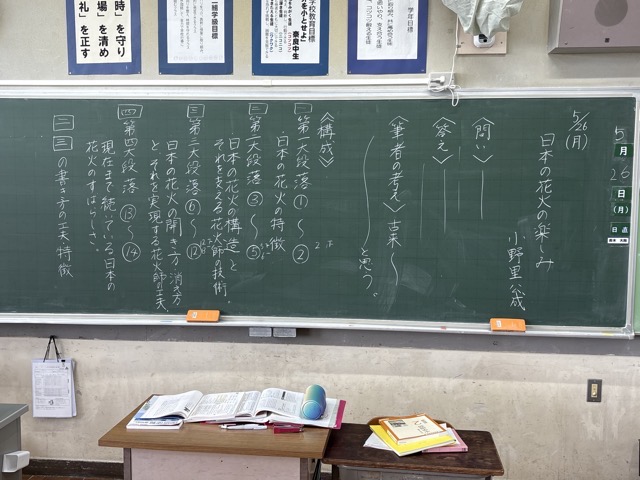 時」を守り
場」を清め
礼」を正す
学級目標
学校教育目標
を小とせよ」
奈良中生
学年目標
5/26(月)
日本の花火の楽しみ
小野里公成
〈問い〉
〈答え〉
〈筆者の考え〉古来〜
〜と思う。
《構成》
一 第一大段落①〜②
・日本の花火の特徴
二 第二大段落③〜⑤
・日本の花火の構造と
それを支える花火師の技術。
三 第三大段落⑥〜⑫
日本の花火の開き方、消え方
とそれを実現する花火師の工夫
四 第四大段落⑬〜⑭
現在まで続いている日本の
花火のすばらしさ。
二 三の書き方の工夫、特徴
5
月
26
日
(月)
日直